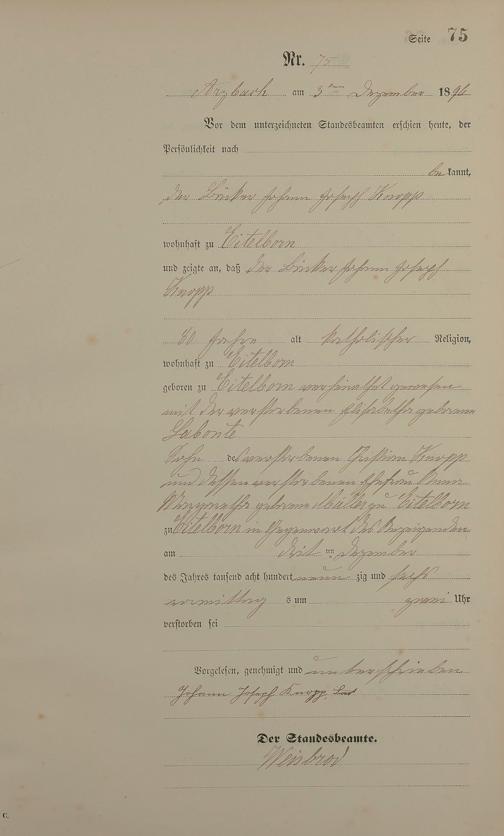 Seite 75
Nr. 75
Arzbach am 3ten Dezember 1896
Vor dem unterzeichneten Standesbeamten erschien heute, der
Persönlichkeit nach
bekannt,
der Bäcker Johann Joseph Knopp
wohnhaft zu Eitelborn
und zeigte an, daß der Bäcker Johann Joseph
Knopp
60 Jahre alt katholischer Religion,
wohnhaft zu Eitelborn
geboren zu Eitelborn verheirathet gewesen
mit der verstorbenen Elisabetha geborenen
Labonte
Sohn des verstorbenen Knopp
und dessen verstorbenen Ehefrau Anna
geborene Müller zu Eitelborn
zu Eitelborn in Gegenwart des Anzeigenden
am dritten Dezember
des Jahres tausend acht hundert neunzig und sechs
vormittags um zwei Uhr
verstorben sei
Vorgelesen, genehmigt und unterschrieben
Johann Joseph Knopp
Der Standesbeamte.
Weisbrod
C.